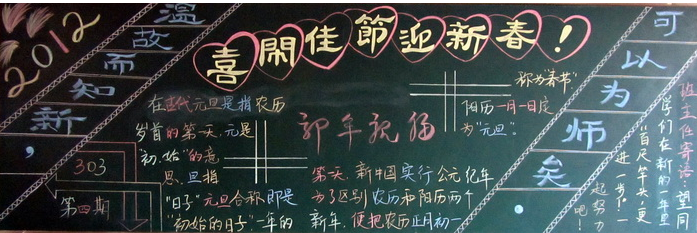 2012
温故而知新，
可以为师矣。
喜闹佳節迎新春！
303
第四期
新年祝福
在古代元旦是指农历
岁首的第一天，元是
初、始"的意
思、旦指
"日子"元旦合称即是
"初始的日子"一年的
第一天，新中国实行公元纪年
为了区别农历和阳历两个
新年，便把农历正月初一
称为"春节"
阳历一月一日定
为"元旦"。
班主任寄语：望同
学们在新的一年里
"百尺竿头，更
进一步"一
起努力
吧！